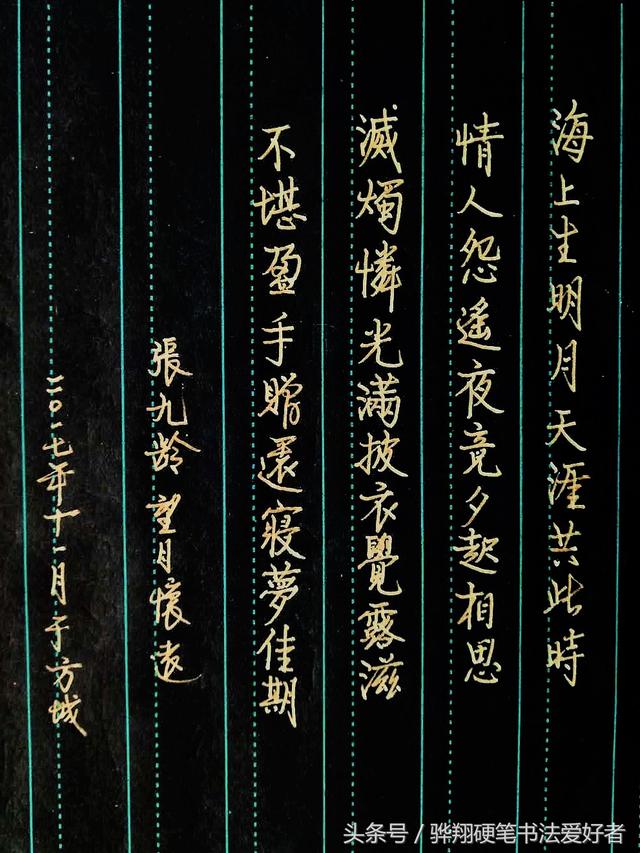 海上生明月天涯共此時
情人怨遥夜竟夕起相思
滅燭憐光滿披衣覺露滋
不堪盈手贈還寢夢佳期
張九齡望月懷遠
二〇一七年十一月于方城
头条号／骅翔硬笔书法爱好者